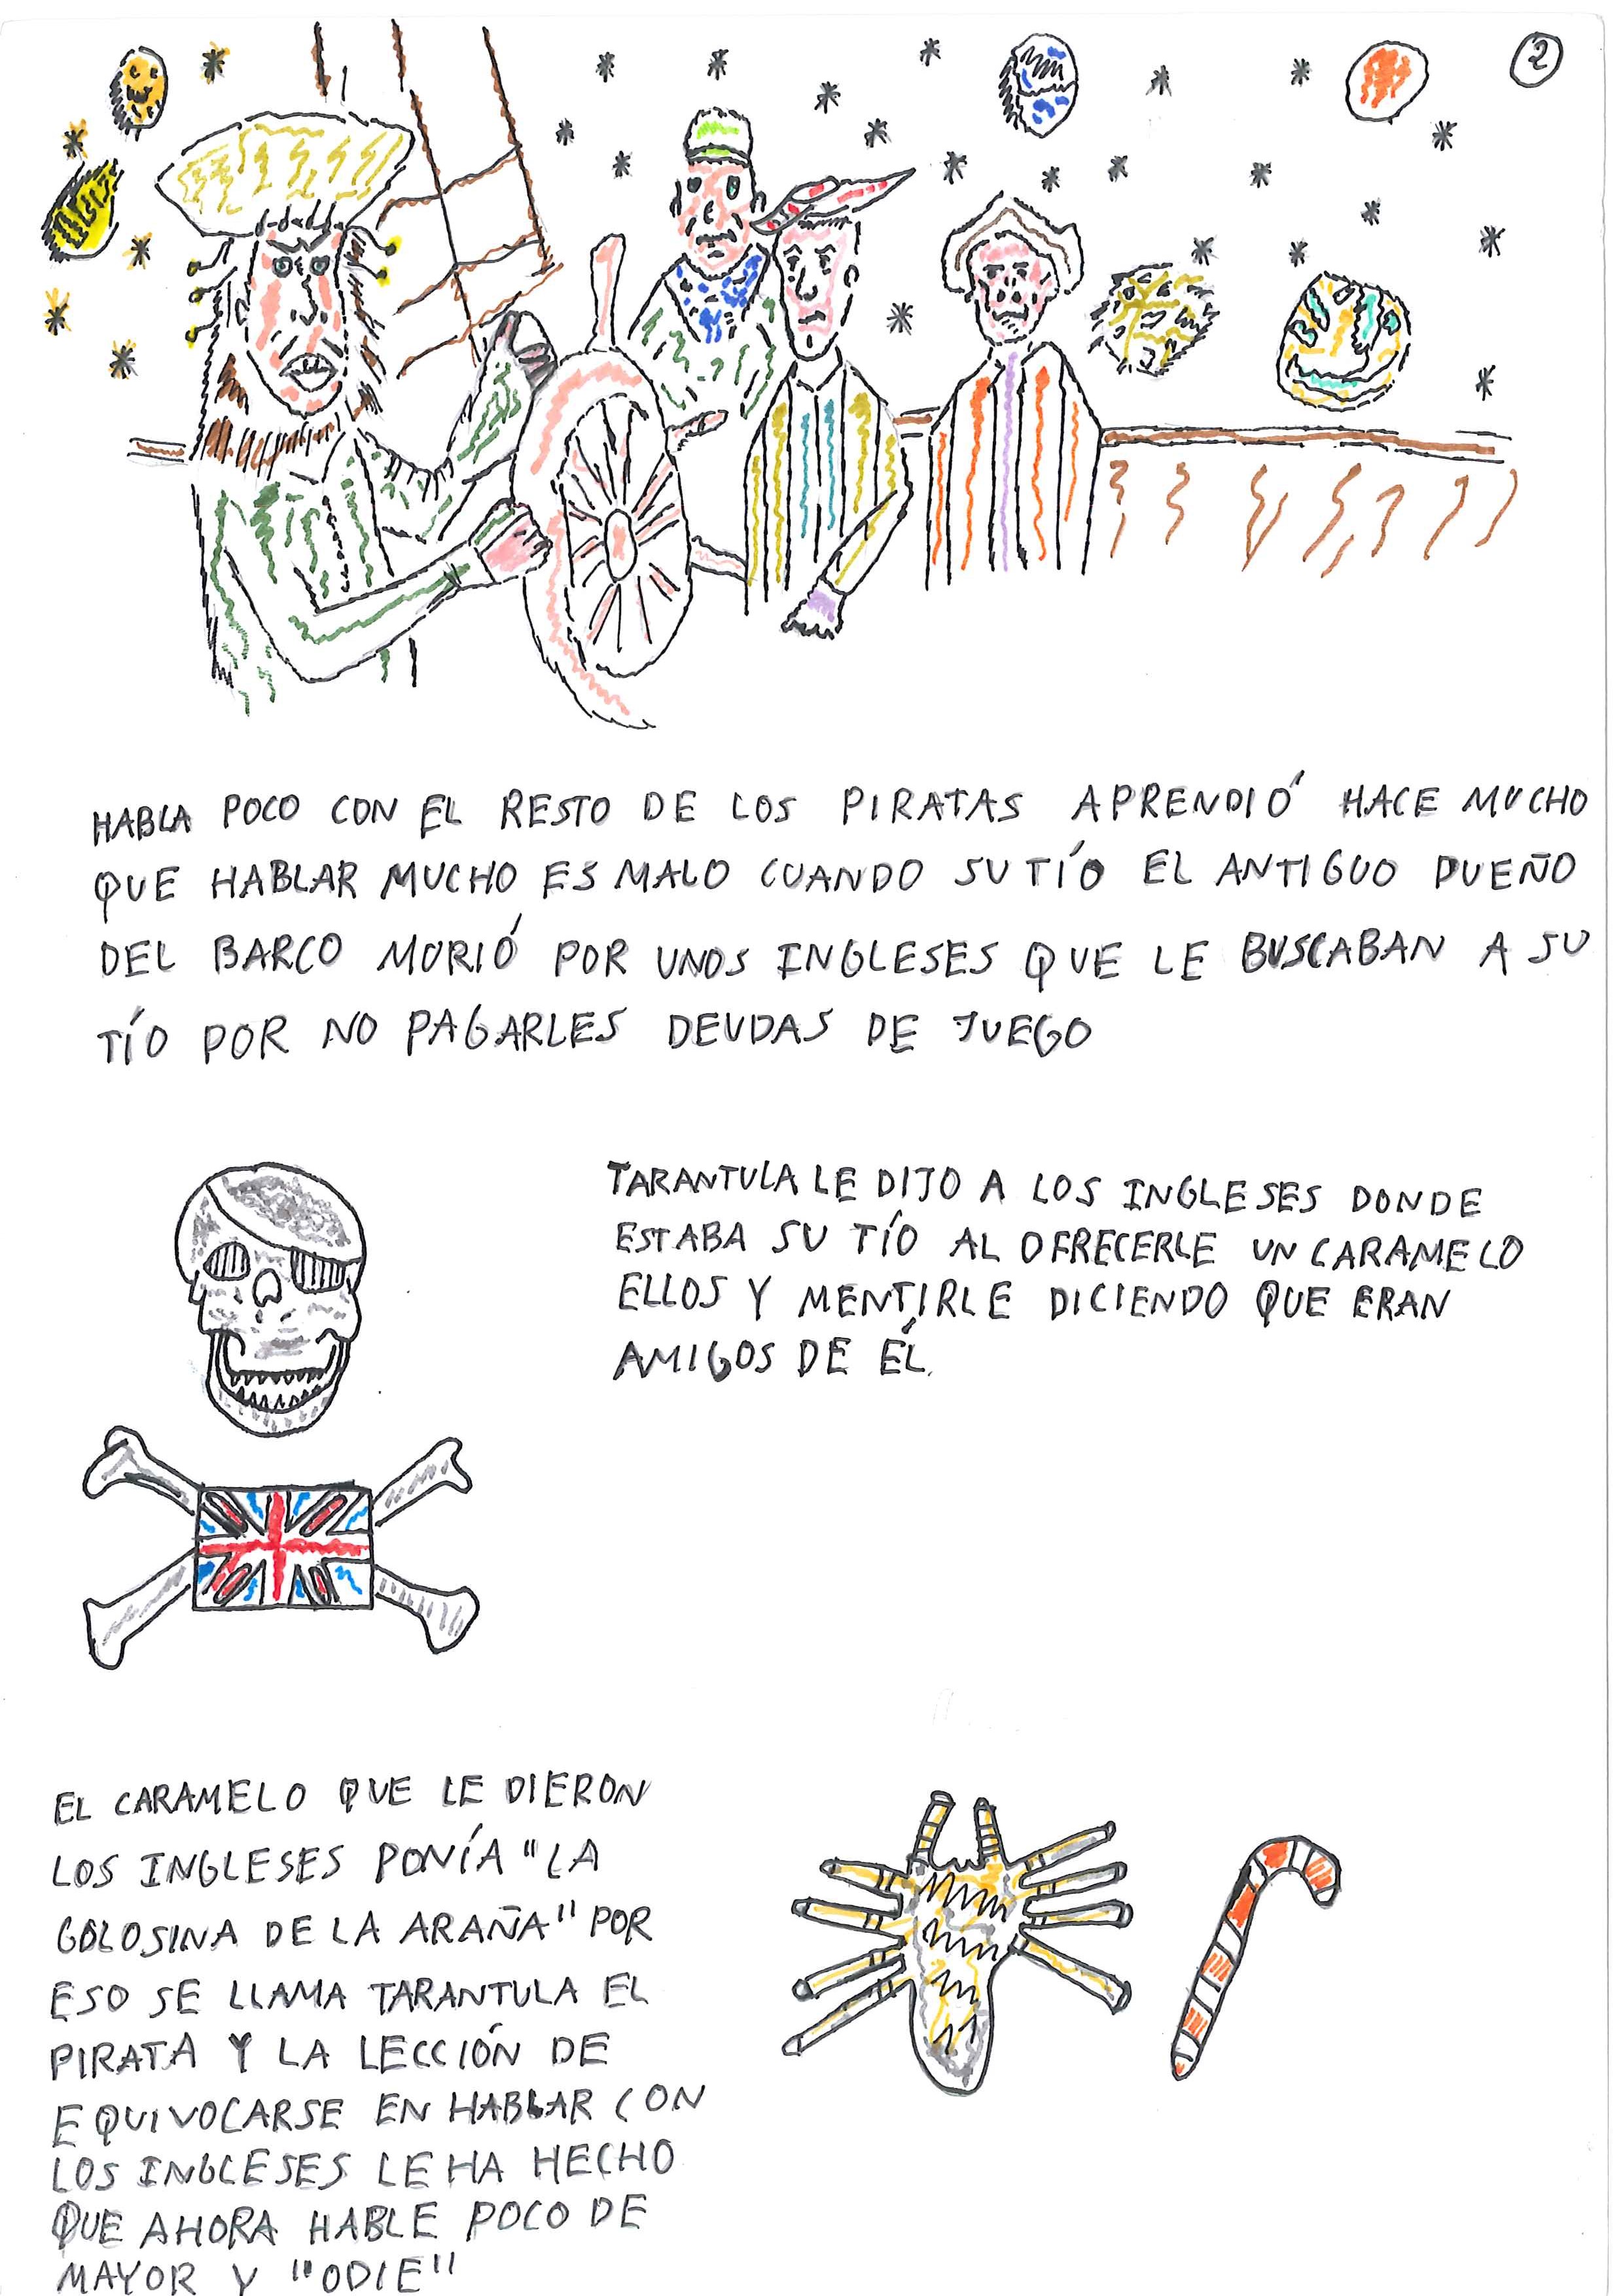 2
HABLA POCO CON EL RESTO DE LOS PIRATAS APRENDIÓ HACE MUCHO
QUE HABLAR MUCHO ES MALO CUANDO SU TÍO EL ANTIGUO DUEÑO
DEL BARCO MURIÓ POR UNOS INGLESES QUE LE BUSCABAN A SU
TÍO POR NO PAGARLES DEUDAS DE JUEGO
TARANTULA LE DIJO A LOS INGLESES DONDE
ESTABA SU TÍO AL OFRECERLE UN CARAMELO
ELLOS Y MENTIRLE DICIENDO QUE ERAN
AMIGOS DE ÉL.
EL CARAMELO QUE LE DIERON
LOS INGLESES PONÍA "LA
GOLOSINA DE LA ARAÑA" POR
ESO SE LLAMA TARANTULA EL
PIRATA Y LA LECCIÓN DE
EQUIVOCARSE EN HABLAR CON
LOS INGLESES LE HA HECHO
QUE AHORA HABLE POCO DE
MAYOR Y "ODIE"